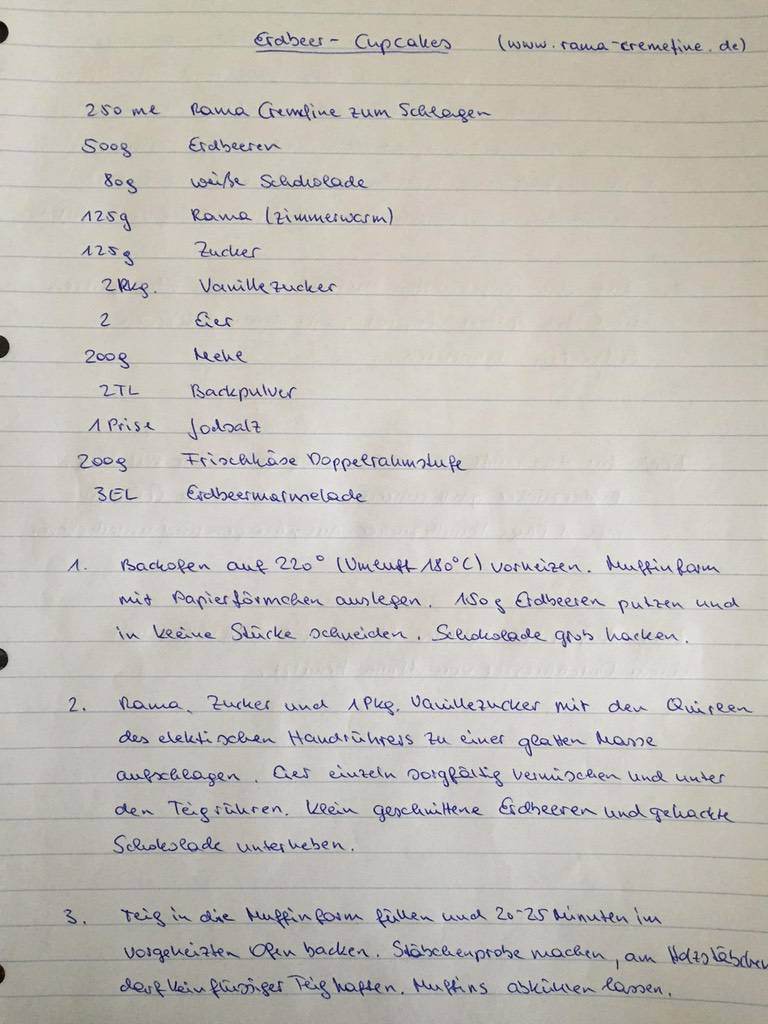 Erdbeer - Cupcakes (www.rama-cremefine.de)
250 ml Rama Cremefine zum Schlagen
500g Erdbeeren
80g weiße Schokolade
125g Rama (zimmerwarm)
125g Zucker
2 Pkg. Vanillezucker
2 Eier
200g Mehl
2TL Backpulver
1 Prise Jodsalz
200g Frischkäse Doppelrahmstufe
3EL Erdbeermarmelade
1. Backofen auf 220° (Umluft 180°C) vorheizen. Muffinform
mit Papierförmchen auslegen. 150g Erdbeeren putzen und
in kleine Stücke schneiden. Schokolade grob hacken.
2. Rama, Zucker und 1 Pkg. Vanillezucker mit den Quirlen
des elektischen Handrührers zu einer glatten Masse
aufschlagen. Eier einzeln sorgfältig vermischen und unter
den Teig rühren. Klein geschnittene Erdbeeren und gehackte
Schokolade unterheben.
3. Teig in die Muffinform füllen und 20-25 Minuten im
vorgeheizten Ofen backen. Stäbchenprobe machen, am Holzstäbchen
darf kein flüssiger Teig haften. Muffins abkühlen lassen.